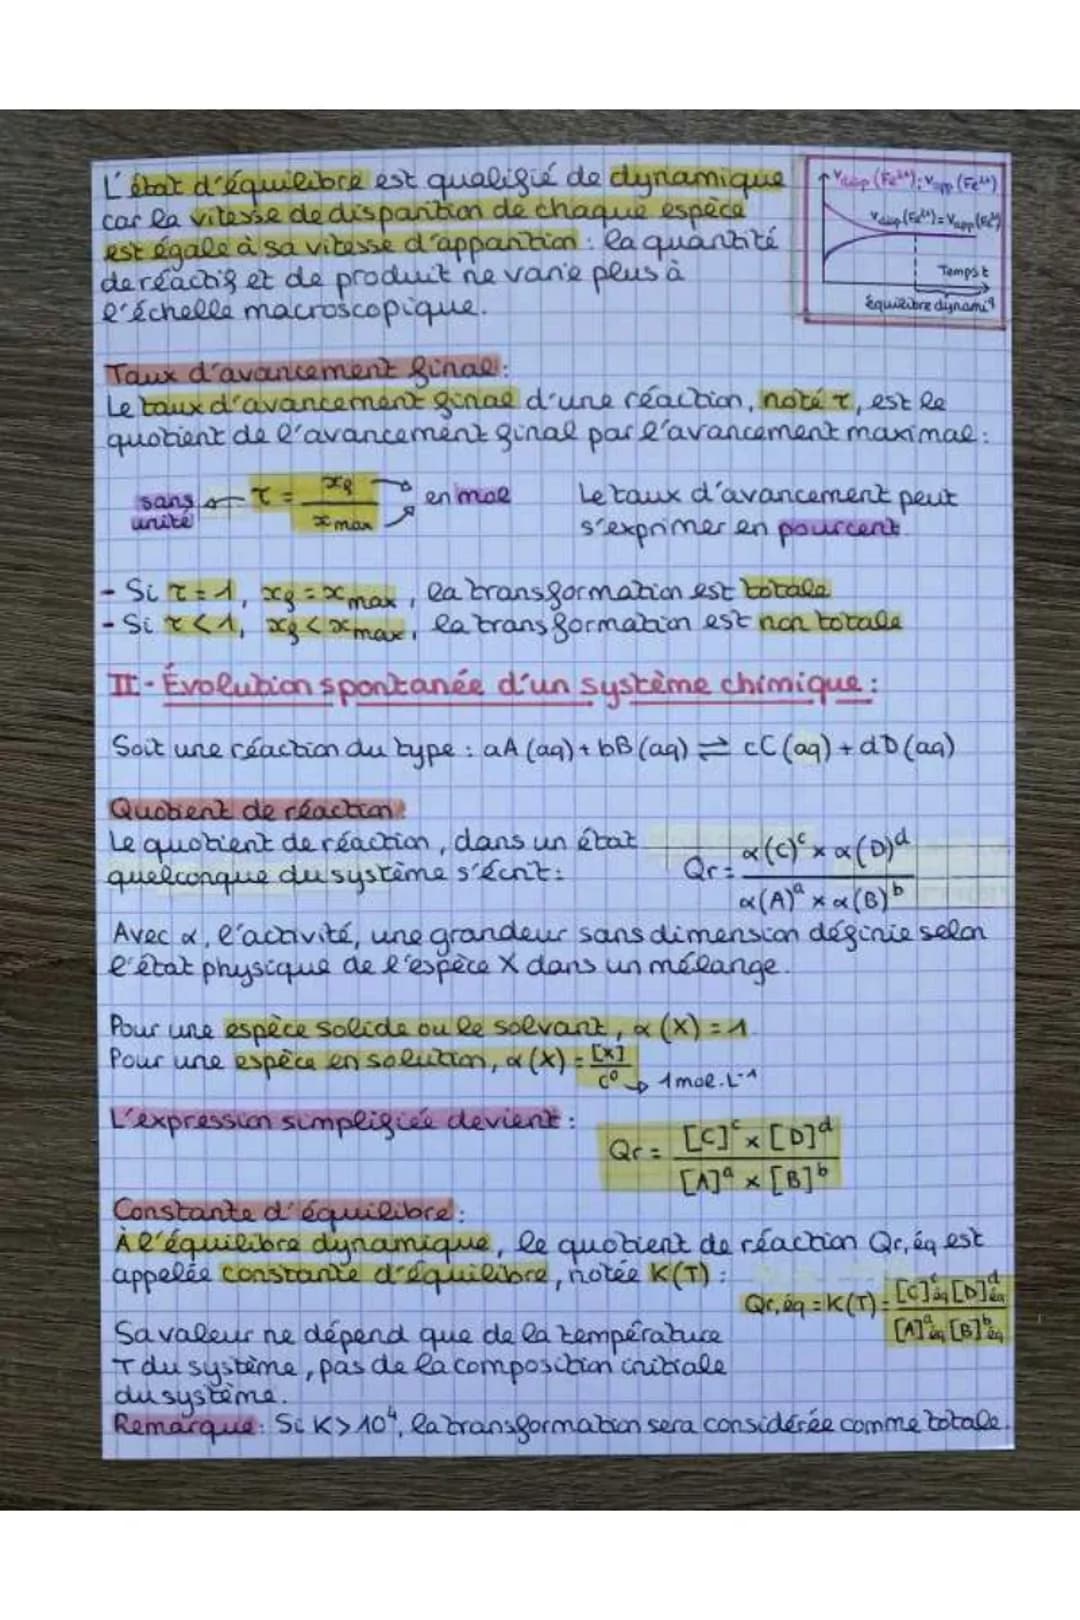 L'état d'équilibre est qualifié de dynamique
car la vitesse de disparition de chaque espèce
est égale à sa vitesse d'apparition : la quantité
de réactif et de produit ne varie plus à
l'échelle macroscopique.
Vdisp (Fe²⁺); Vapp (Fe²⁺)
Vdisp (Fe²⁺) = Vapp (Fe²⁺)
Temps t
Équilibre dynamiq
Taux d'avancement final :
Le taux d'avancement final d'une réaction, noté τ, est le
quotient de l'avancement final par l'avancement maximal :
sans unité ← τ = xf / xmax → en mol
Le taux d'avancement peut
s'exprimer en pourcent.
- Si τ = 1, xf = xmax, la transformation est totale
- Si τ < 1, xf < xmax, la transformation est non totale
II - Évolution spontanée d'un système chimique :
Soit une réaction du type : aA (aq) + bB (aq) ⇌ cC (aq) + dD (aq)
Quotient de réaction
Le quotient de réaction, dans un état
quelconque du système s'écrit :
Qr = α(C)ᶜ × α(D)ᵈ / α(A)ᵃ × α(B)ᵇ
Avec α, l'activité, une grandeur sans dimension définie selon
l'état physique de l'espèce X dans un mélange.
Pour une espèce solide ou le solvant, α (X) = 1.
Pour une espèce en solution, α (X) = [X] / C⁰ → 1 mol.L⁻¹
L'expression simplifiée devient :
Qr = [C]ᶜ × [D]ᵈ / [A]ᵃ × [B]ᵇ
Constante d'équilibre :
À l'équilibre dynamique, le quotient de réaction Qr,éq est
appelée constante d'équilibre, notée K(T) :
Qr,éq = K(T) = [C]ᶜéq [D]ᵈéq / [A]ᵃéq [B]ᵇéq
Sa valeur ne dépend que de la température
T du système, pas de la composition initiale
du système.
Remarque : Si K > 10⁴, la transformation sera considérée comme totale.